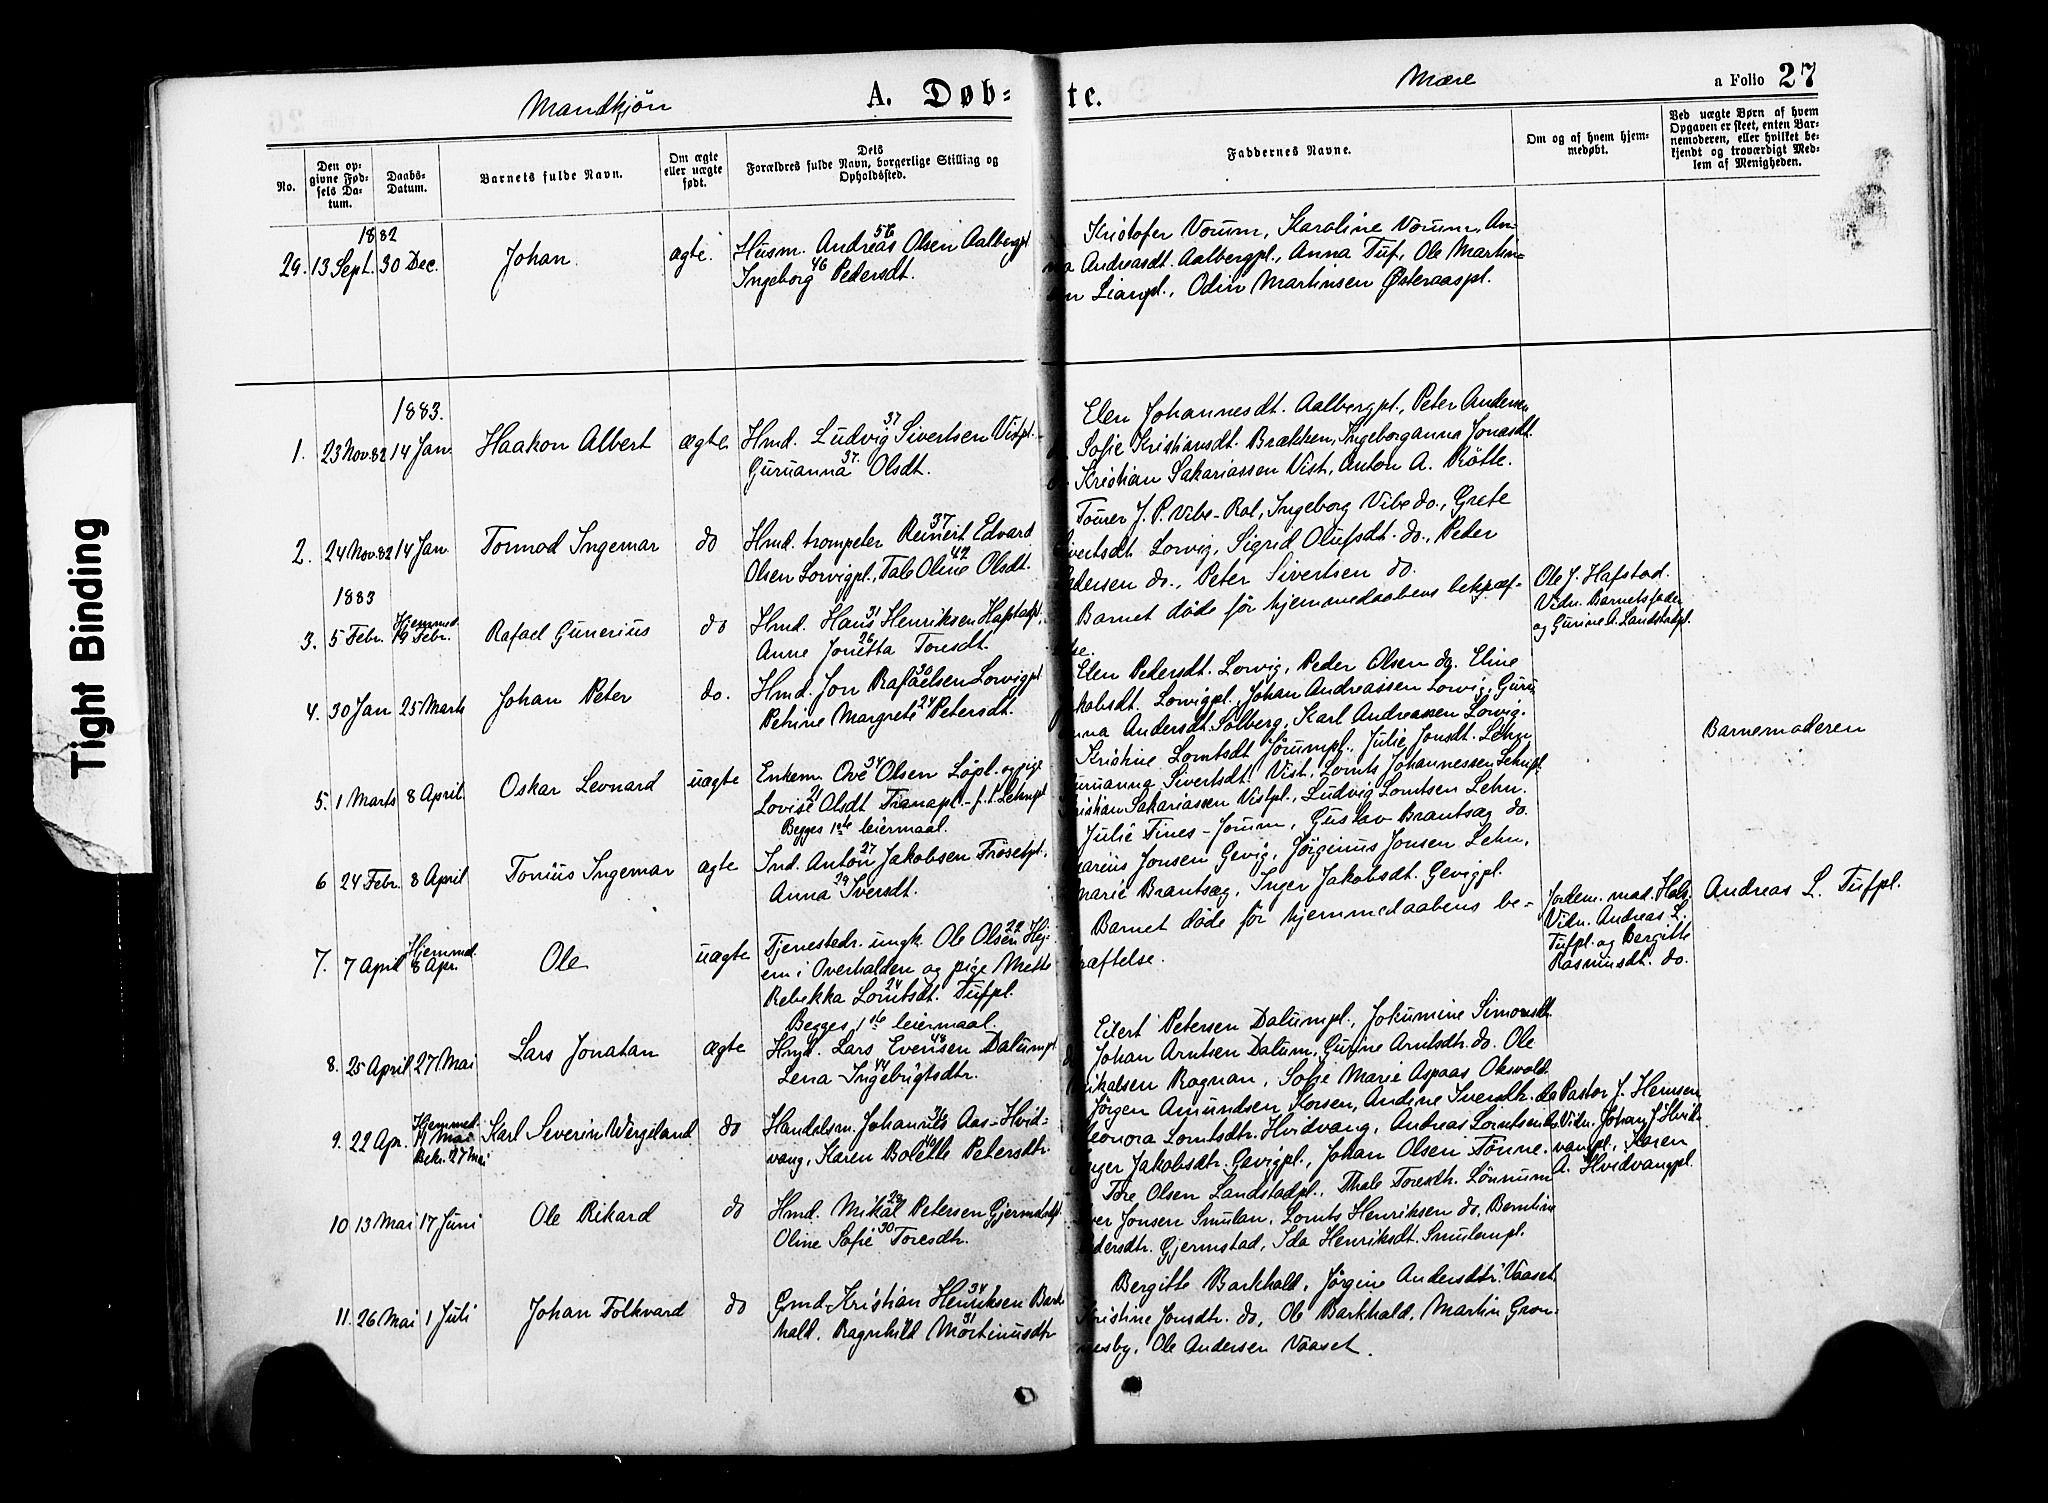 Mandkjön
A. Døb-
te.
Mære
a Folio 27
No.
Den op-
givne Fød-
sels Da-
tum.
Daabs-
Datum.
Barnets fulde Navn.
Om ægte
eller uægte
født.
Dets
Forældres fulde Navn, borgerlige Stilling og
Opholdssted.
Faddernes Navne.
Om og af hvem hjem-
medøbt.
Ved uægte Børn af hvem
Opgaven er skeet, enten Bar-
nemoderen, eller hvilket be-
kjendt og troværdigt Med-
lem af Menigheden.
1882
29. 13 Sept. 30 Dec. Johan. ægte.
Husm. Andreas 56 Olsen Aalbergpl
Ingeborg 46 Pedersdt.
Kristofer Vorum, Karoline Vorum, An-
na Andreasdt. Aalbergpl., Anna Tuf, Ole Martin-
sen Lianpl., Odin Martinsen Østeraaspl.
1883.
1. 23 Nov 82 14 Jan Haakon Albert ægte
Hmd. Ludvig 37 Sivertsen Vistpl.
Guruanna 37. Olsdt.
Elen Johannesdt. Aalbergpl., Peter Andersen
Sofie Kristiansdt. Brækken, Ingeborganna Jonasdt.
Kristian Sakariassen Vist, Anton A. Røtte.
2. 24 Nov. 82 14 Jan. Tormod Ingemar do
Hmd. trompeter Reinert 37 Edvard
Olsen Lorvigpl., Tale Oline 42 Olsdt.
Tomer J. P. Vibe-Rol, Ingeborg Vibe do., Grete
Sivertsdt Lorvig, Sigrid Olufsdt. do., Peder
Pedersen do., Peter Sivertsen do.
1883
3. 5 Febr. Hjemmd. 19 Febr. Rafael Gunerius do
Hmd. Hans 31 Henriksen Hafstadpl.
Anne Jonetta 26 Toresdt.
Barnet døde før hjemmedaabens bekræf-
telse.
Ole J. Hafstad.
Vidn. Barnets fader
og Gurine A. Landstadpl.
4. 30 Jan 25 Marts Johan Peter do.
Hmd. Jon Rafaelsen 30 Lorvigpl
Petrine Margrete 24 Petersdt.
Elen Pedersdt. Lorvig, Peder Olsen do. Eline
Jakobsdt. Lorvigpl. Johan Andreassen Lorvig, Guru
anna Andersdt. Solberg, Karl Andreassen Lorvig.
5. 1 Marts 8 April Oskar Leonard uægte
Enkem. Ove 34 Olsen Løpl. og pige
Lovise 21 Olsdt Tranapl. - f. t. Lehnpl
Begges 1ste leiermaal.
Kristine Lomtsdt Jørumpl. Julie Jonsdt. Lehn,
Guruanna Sivertsdt. Vist, Lomts Johannessen Lehnpl.
Kristian Sakariassen Vistpl., Ludvig Lomtsen Lehn.
Barnemoderen
6 24 Febr. 8 April Tonius Ingemar ægte
Ind. Anton 27 Jakobsen Trøsetpl.
Anna 29 Iversdt.
Julie Fines-Jorum, Gustav Brantsæg do.
Marius Jonsen Gevig, Jørginus Jonsen Lehn,
Marie Brantsæg, Inger Jakobsdt. Gevigpl.
7. 7 April Hjemmd. 8 Apr. Ole uægte
Tjenestedr. ungk. Ole Olsen 22 Hej-
em i Overhalden og pige Mette
Rebekka Lomtsdt. 24 Tufpl.
Begges 1ste leiermaal.
Barnet døde før hjemmedaabens be-
kræftelse.
Jordem. mad. Hals.
Vidn. Andreas L.
Tufpl. og Bergitte
Rasmusdt. do.
Andreas L. Tufpl.
8. 25 April 27 Mai Lars Jonatan ægte
Hmd. Lars Evensen 43 Dalumpl
Lena 44 Ingebrigtsdtr.
Eilert Petersen Dalumpl., Jokumine Simonsdt
do Johan Arntsen Dalum, Gurine Arntsdtr. do. Ole
Mikalsen Rognan, Sofie Marie Aspaas Okvold.
9. 22 Apr. Hjemmed. 11 Mai Bekr. 27 Mai Karl Severin Wergeland do
Handelsm. Johannes 36 Aas-Hvid-
vang, Karen Bolette 40 Petersdtr.
Jørgen Amundsen Korsen, Andine Iversdtr. do
Leonora Lomtsdtr. Hvidvang, Andreas Lorntsen do.
Inger Jakobsdtr. Gevigpl., Johan Olsen Tønne.
Pastor J. Hemsen
Vidn. Johan J. Hvid-
vangpl., Karen
A. Hvidvangpl.
10 13 Mai 17 Juni Ole Rikard do
Hmd. Mikal 29 Petersen Gjermstadpl
Oline Sofie 30 Toresdtr.
Tore Olsen Landstadpl., Thale Toresdtr. Lønnum
Iver Jonsen Smulan, Lomts Henriksen do, Berntine
Pedersdtr. Gjermstad, Ida Henriksdt. Smulanpl.
11. 26 Mai 1 Juli Johan Folkvard do
Gmd. Kristian Henriksen 34 Bark
hald, Ragnhild Mortinusdtr 31
Bergitte Barkhald, Jørgine Andersdtr. Vaaset
Kristine Jonsdtr. do, Ole Barkhald, Martin Gron-
nesby, Ole Andersen Vaaset.
Tight Binding